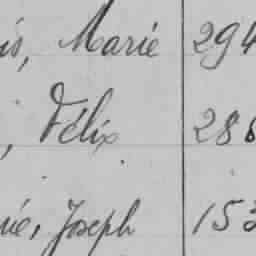 is, Marie 294
, Félix 286
rié, Joseph 153